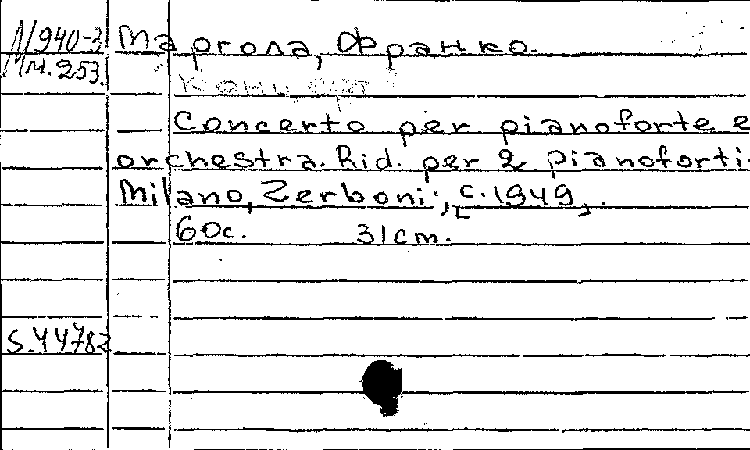 М940-3 Маргола, Франко.
Мм.253.
Концерт
Concerto per pianoforte e
orchestra. Rid. per 2 pianoforti.
Milano, Zerboni, [c.1949].
60c. 31cm.
S.44782